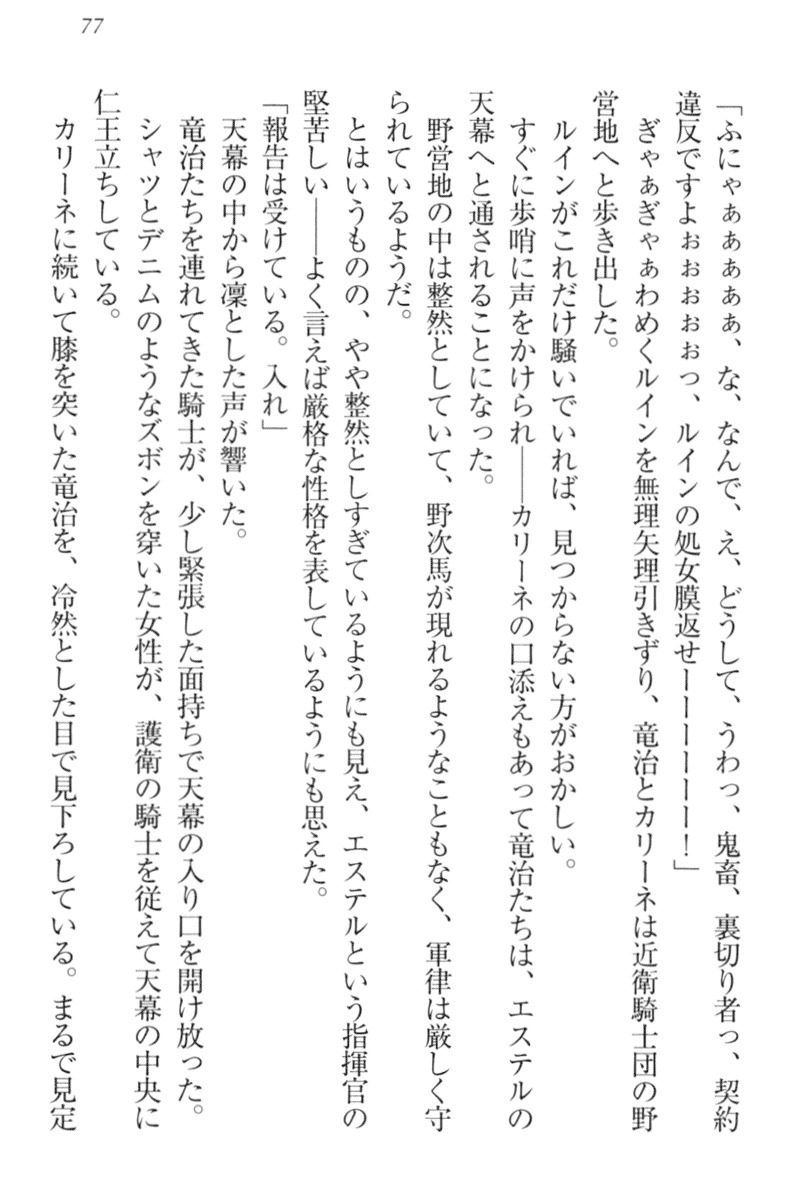 77
「ふにゃぁぁぁぁぁ、な、なんで、え、どうして、うわっ、鬼畜、裏切り者っ、契約
違反ですよぉぉぉぉぉっ、ルインの処女膜返せーーーーーー！」
ぎゃぁぎゃぁわめくルインを無理矢理引きずり、竜治とカリーネは近衛騎士団の野
営地へと歩き出した。
ルインがこれだけ騒いでいれば、見つからない方がおかしい。
すぐに歩哨に声をかけられ――カリーネの口添えもあって竜治たちは、エステルの
天幕へと通されることになった。
野営地の中は整然としていて、野次馬が現れるようなこともなく、軍律は厳しく守
られているようだ。
とはいうものの、やや整然としすぎているようにも見え、エステルという指揮官の
堅苦しい――よく言えば厳格な性格を表しているようにも思えた。
「報告は受けている。入れ」
天幕の中から凜とした声が響いた。
竜治たちを連れてきた騎士が、少し緊張した面持ちで天幕の入り口を開け放った。
シャツとデニムのようなズボンを穿いた女性が、護衛の騎士を従えて天幕の中央に
仁王立ちしている。
カリーネに続いて膝を突いた竜治を、冷然とした目で見下ろしている。まるで見定